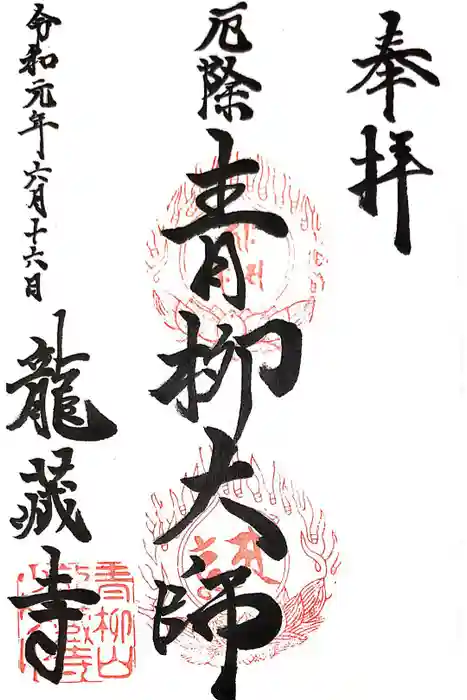 奉拝
厄除
青柳大師
令和元年六月十六日
龍蔵寺
青柳山
龍蔵寺